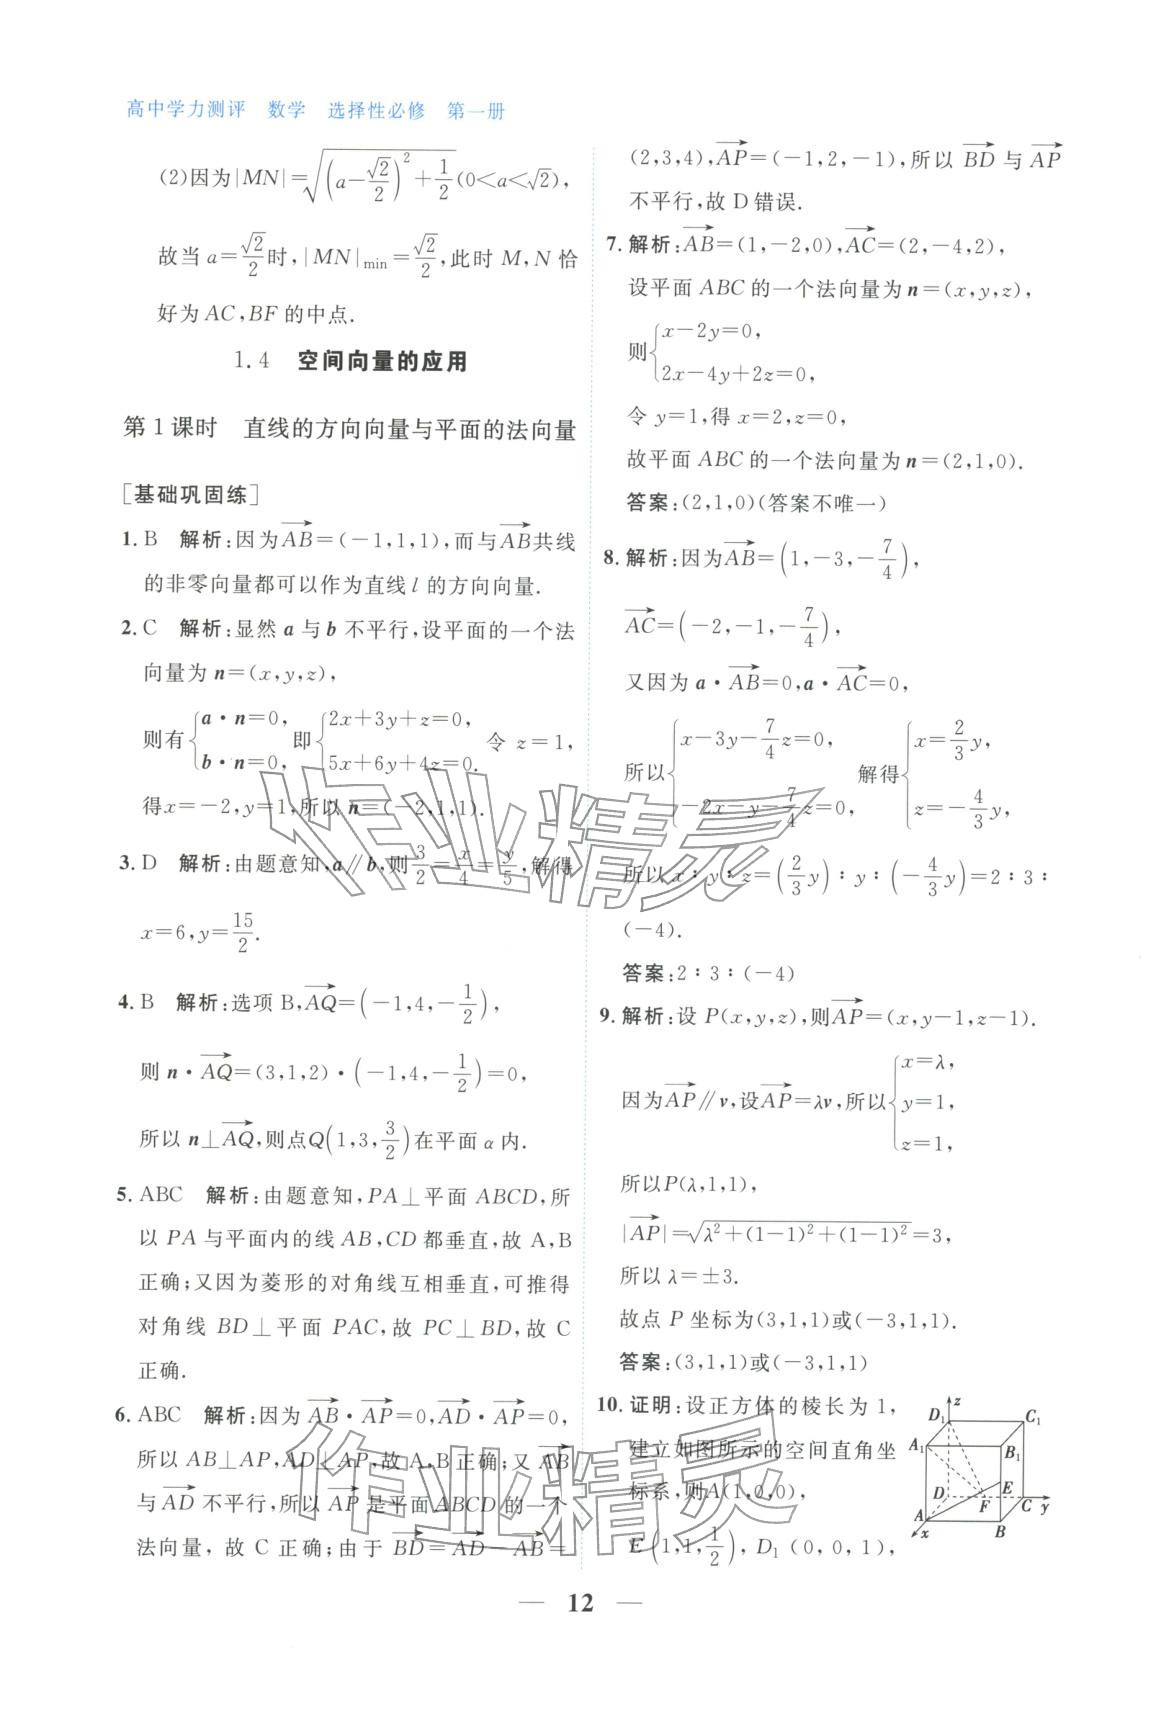 高中学力测评 数学 选择性必修 第一册
(2)因为|MN|=√((a-√2/2)²+1/2)(0<a<√2),
故当a=√2/2时,|MN|min=√2/2,此时M,N恰
好为AC,BF的中点.
1.4 空间向量的应用
第1课时 直线的方向向量与平面的法向量
[基础巩固练]
1. B 解析:因为AB→=(-1,1,1),而与AB→共线
的非零向量都可以作为直线l的方向向量.
2. C 解析:显然a与b不平行,设平面的一个法
向量为n=(x,y,z),
则有{a·n=0, b·n=0, 即{2x+3y+z=0, 5x+6y+4z=0. 令z=1,
得x=-2,y=1,所以n=(-2,1,1).
3. D 解析:由题意知,a∥b,则3/2=x/4=y/5,解得
x=6,y=15/2.
4. B 解析:选项B,AQ→=(-1,4,-1/2),
则n·AQ→=(3,1,2)·(-1,4,-1/2)=0,
所以n⊥AQ→,则点Q(1,3,3/2)在平面α内.
5. ABC 解析:由题意知,PA⊥平面ABCD,所
以PA与平面内的线AB,CD都垂直,故A,B
正确;又因为菱形的对角线互相垂直,可推得
对角线BD⊥平面PAC,故PC⊥BD,故C
正确.
6. ABC 解析:因为AB→·AP→=0,AD→·AP→=0,
所以AB⊥AP,AD⊥AP,故A,B正确;又AB→
与AD→不平行,所以AP→是平面ABCD的一个
法向量,故C正确;由于BD→=AD→-AB→=
(2,3,4),AP→=(-1,2,-1),所以BD→与AP→
不平行,故D错误.
7. 解析:AB→=(1,-2,0),AC→=(2,-4,2),
设平面ABC的一个法向量为n=(x,y,z),
则{x-2y=0, 2x-4y+2z=0,
令y=1,得x=2,z=0,
故平面ABC的一个法向量为n=(2,1,0).
答案:(2,1,0)(答案不唯一)
8. 解析:因为AB→=(1,-3,-7/4),
AC→=(-2,-1,-7/4),
又因为a·AB→=0,a·AC→=0,
所以{x-3y-7/4z=0, -2x-y-7/4z=0, 解得{x=2/3y, z=-4/3y,
所以x:y:z=(2/3y):y:(-4/3y)=2:3:
(-4).
答案:2:3:(-4)
9. 解析:设P(x,y,z),则AP→=(x,y-1,z-1).
因为AP→∥v,设AP→=λv,所以{x=λ, y=1, z=1,
所以P(λ,1,1),
|AP→|=√(λ²+(1-1)²+(1-1)²)=3,
所以λ=±3.
故点P坐标为(3,1,1)或(-3,1,1).
答案:(3,1,1)或(-3,1,1)
10. 证明:设正方体的棱长为1,
建立如图所示的空间直角坐
标系,则A(1,0,0),
E(1,1,1/2),D₁(0,0,1),
z
D₁ C₁
A₁ B₁
E
D F C y
A B
x
作业精灵
作业精灵
— 12 —